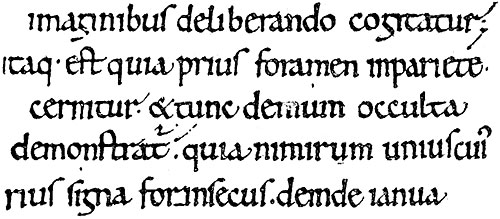 imaginibus deliberando cogitatur;
itaq· est quia prius foramen inpariete·
cernitur· & tunc demum occulta
demonstrat̃· quia nimirum uniuscui᾽
rius signa forinsecus· deinde ianua